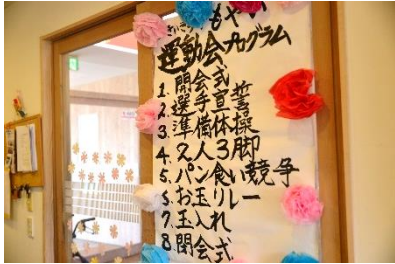 運動会プログラム
1. 開会式
2. 選手宣誓
3. 準備体操
4. 2人3脚
5. パン食い競争
6. お玉リレー
7. 玉入れ
8. 閉会式